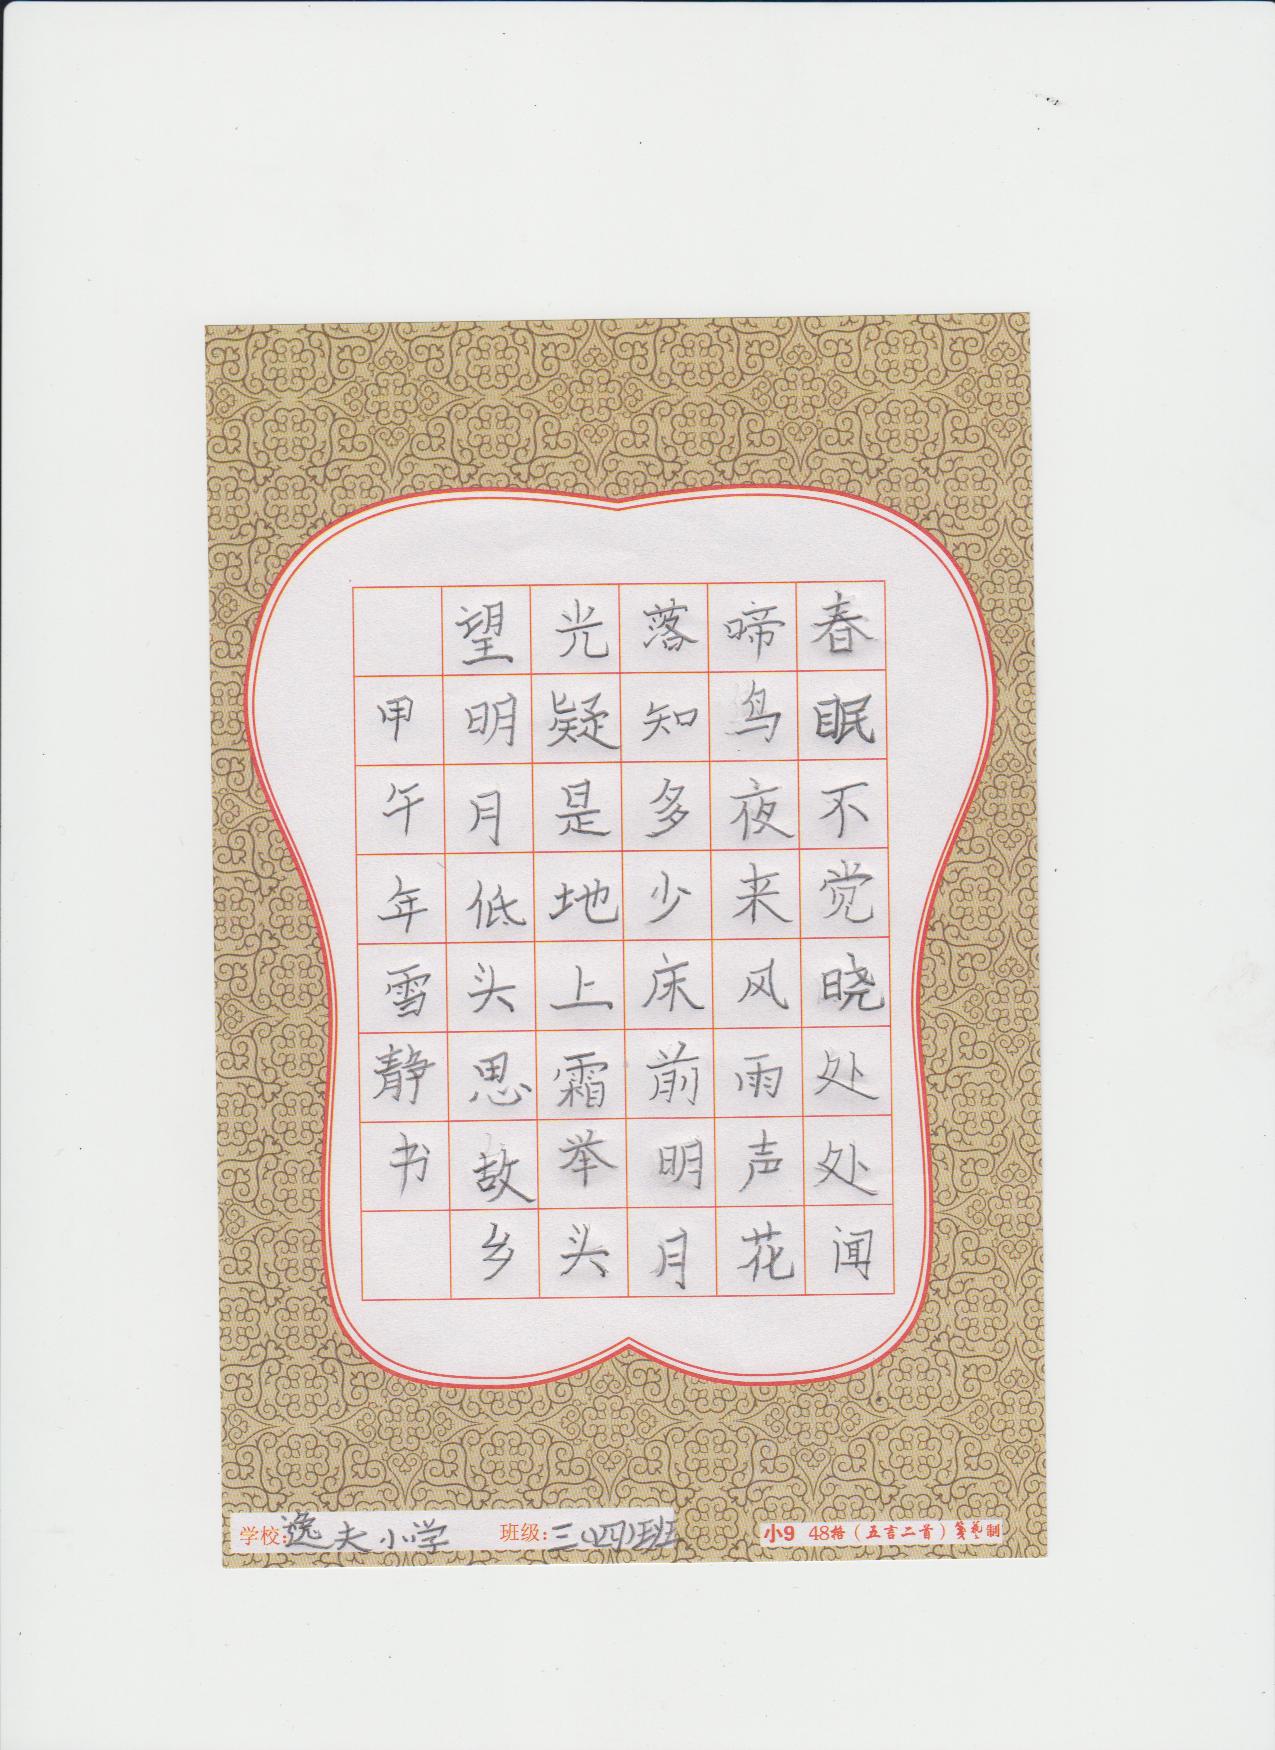 春眠不觉晓处处闻
啼鸟夜来风雨声花
落知多少床前明月
光疑是地上霜举头
望明月低头思故乡
甲午年雪静书
学校:逸夫小学 班级:三(四)班
小9 48格(五言二首)笺艺制